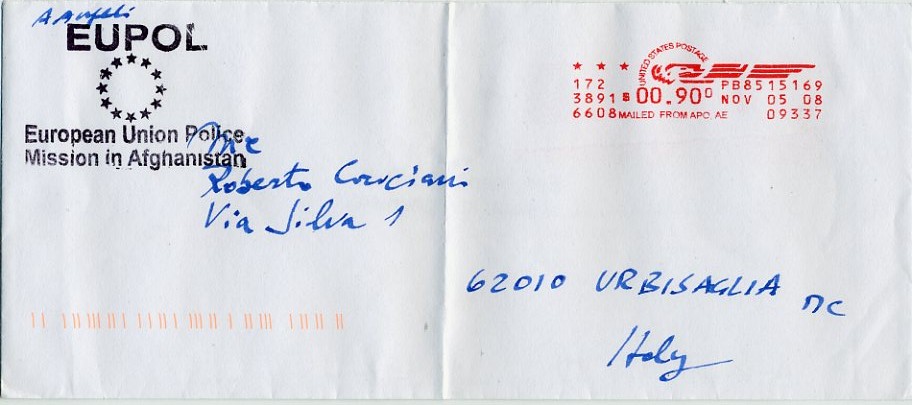 A Angeli
EUPOL
European Union Police
Mission in Afghanistan
UNITED STATES POSTAGE
172 PB8515169
3891 $00.900 NOV 05 08
6608 MAILED FROM APO, AE 09337
Roberto
Via Silva 1
62010 URBISAGLIA MC
Italy